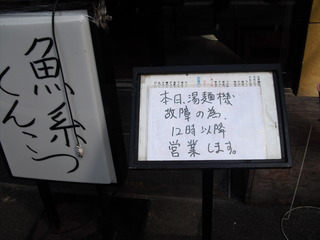 魚系
てんこつ
本日、湯麺機
故障の為、
12時以降
営業します。